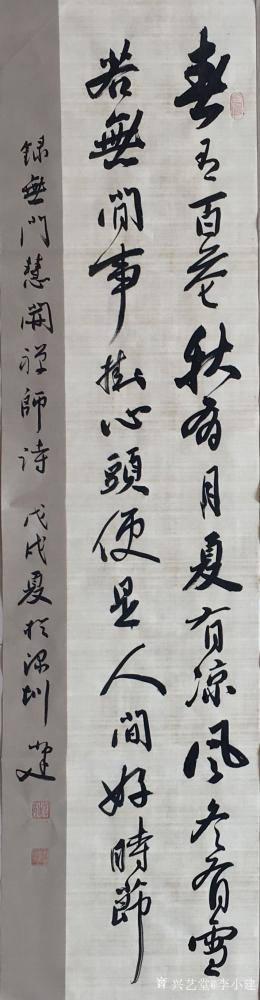 春有百花秋有月夏有凉风冬有雪
若無閒事掛心頭便是人间好時節
録無門慧開禅師诗 戊戌夏於深圳 小建
兴艺堂@李小建